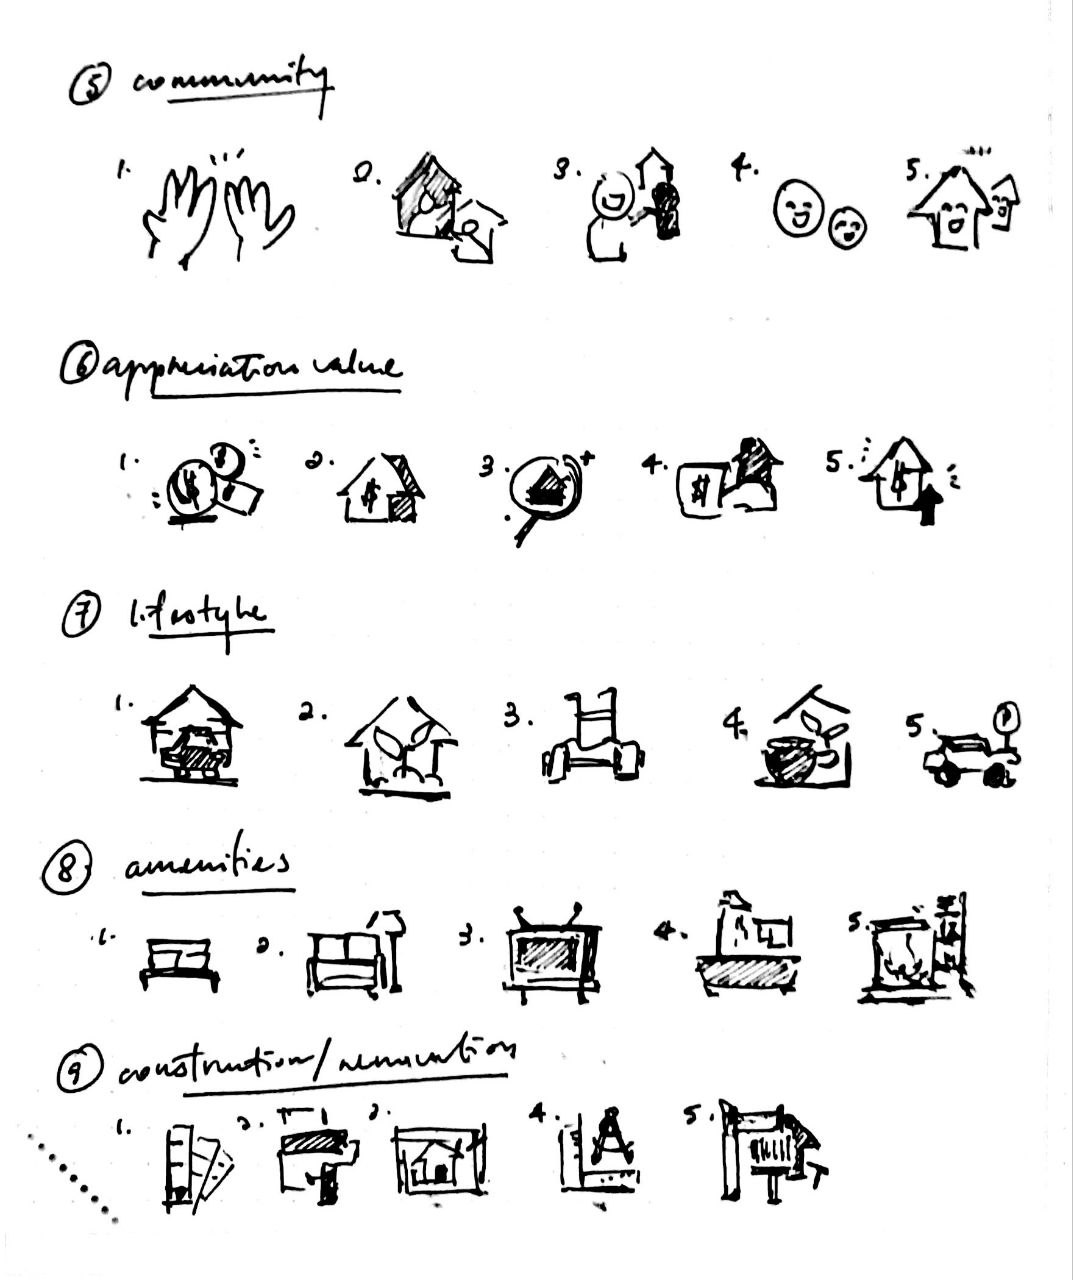 5 community
1. 2. 3. 4. 5.
6 appreciation value
1. 2. 3. 4. 5.
7 lifestyle
1. 2. 3. 4. 5.
8 amenities
1. 2. 3. 4. 5.
9 construction/renovation
1. 2. 3. 4. 5.